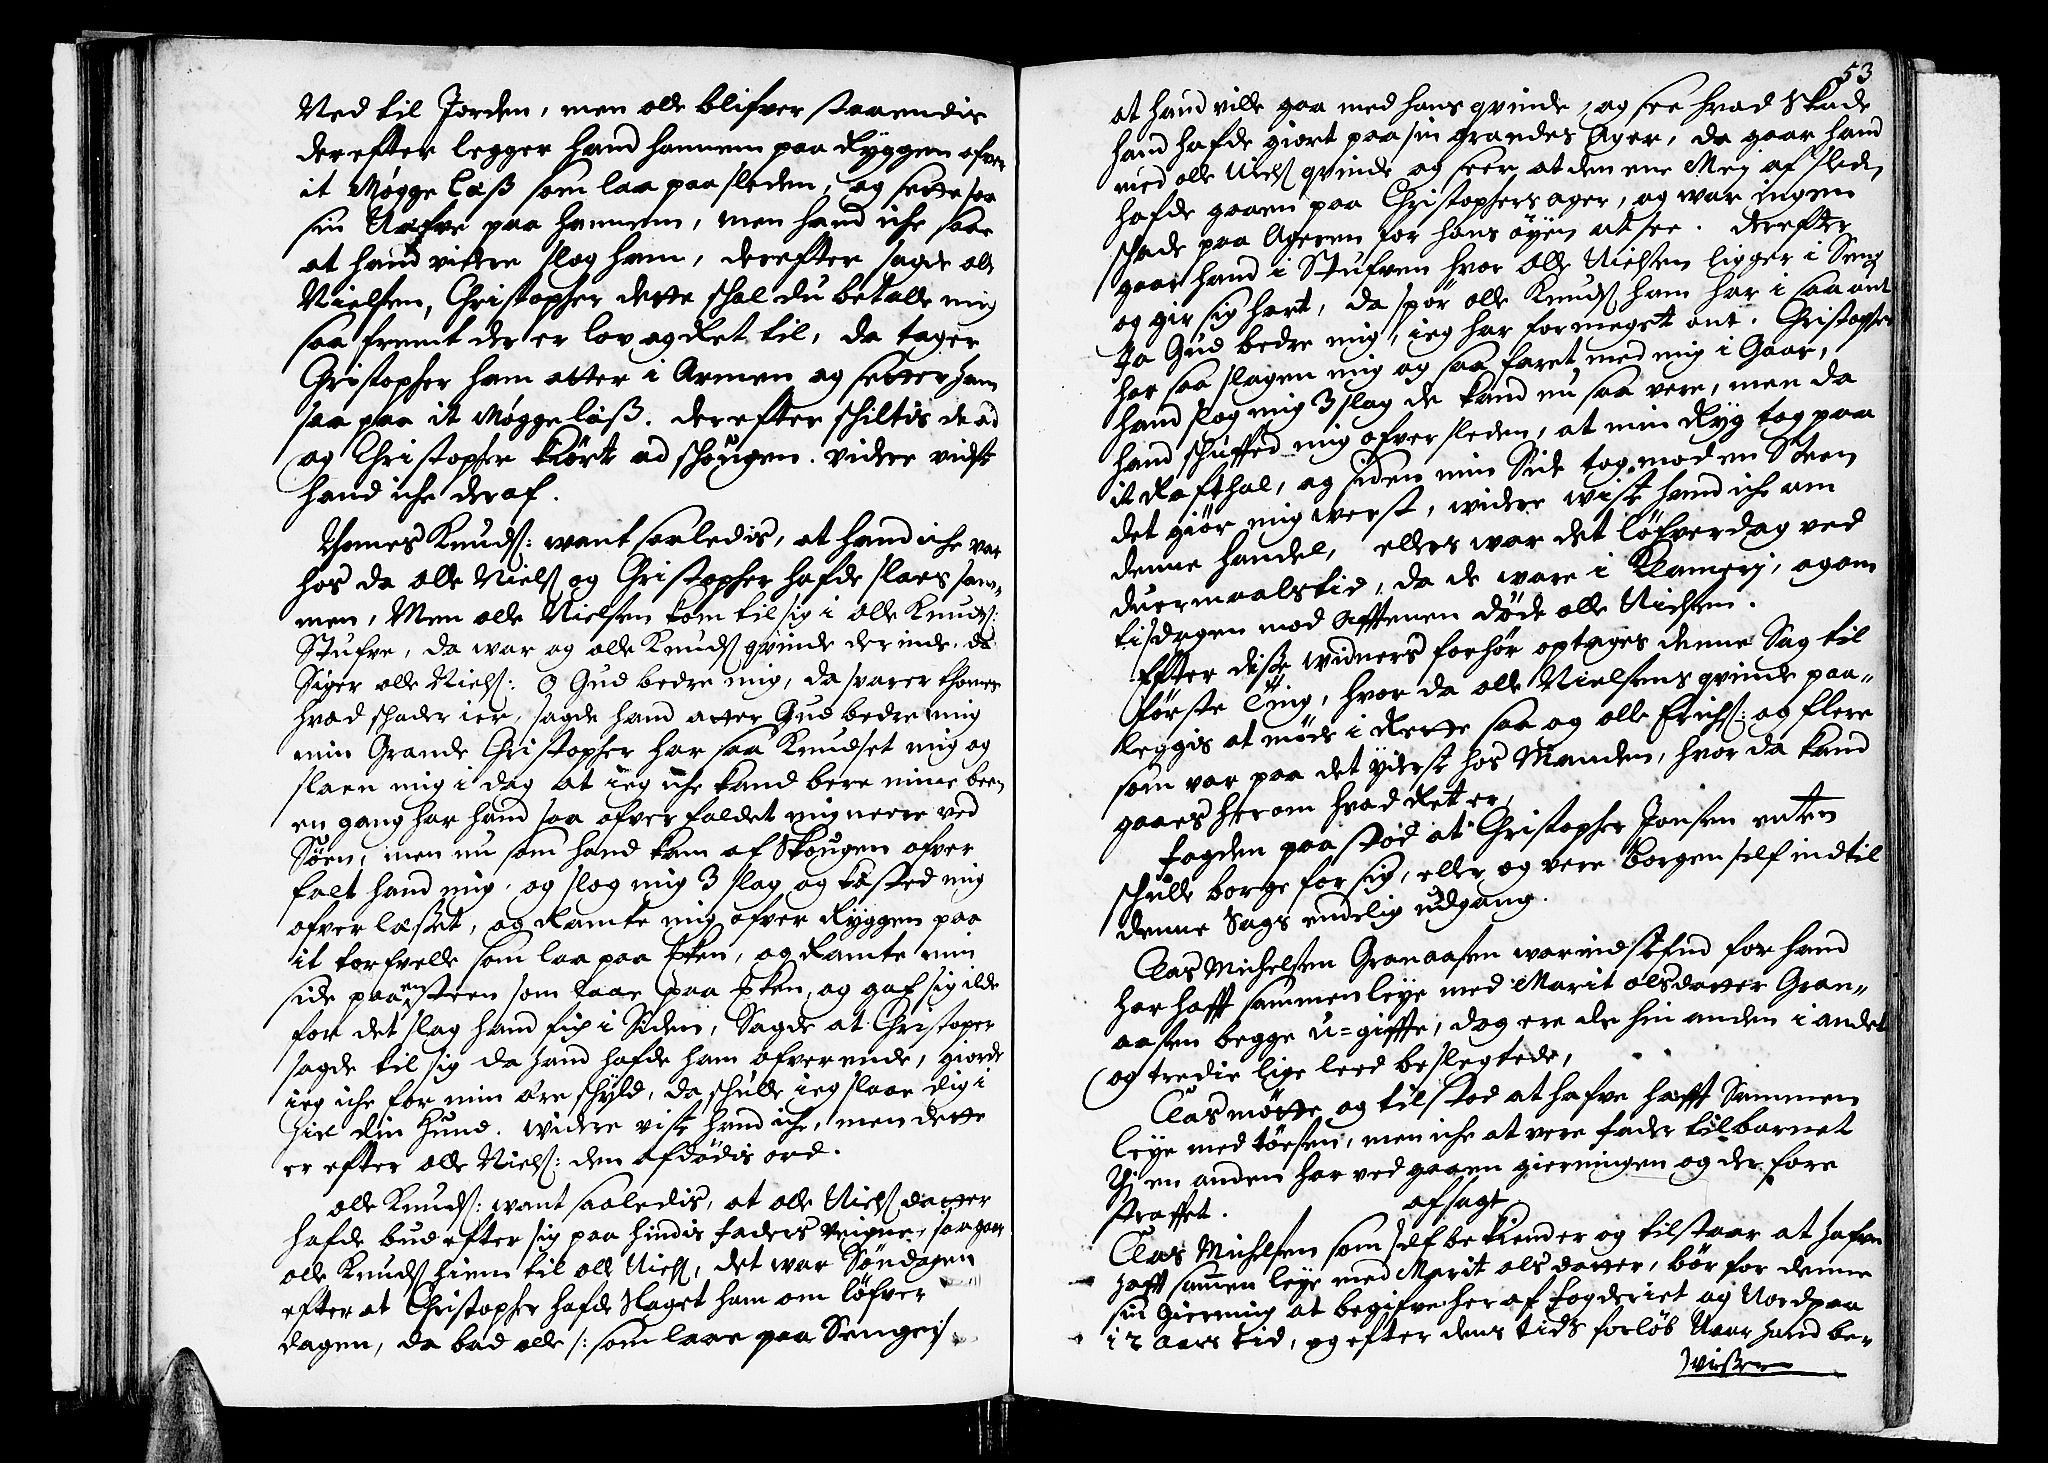 Ned til Jorden, men olle blifver staaendis
der efter legger hand hannem paa Ryggen ofver
it Møgge læß som laa paa sleden, og sette for
sin Næfve paa hannem, men hand iche saae
at hand videre slog ham, derefter sagde olle
Nielsen, Christopher dette schal du betalle mig
saa fremt der er lov og Ret til, da tager
Christopher ham atter i Armen og setter ham
saa paa it Møgge läß. der efter schiltis de ad
og Christopher kiørte ad schougen. videre vidste
hand iche deraf.
Thomes Knuds: want saaledis, at hand iche var
hos da olle Niels og Christopher hafde slaes sam-
men, Men olle Nielsen kom til sig i olle Knuds:
Stufve, da war og olle Knuds qvinde der inde. da
Siger olle Niels: O Gud bedre mig, da svarer thomes
hvad schader ier, sagde hand atter Gud bedre mig
min Grande Christopher har saa Knudset mig og
slaen mig i dag at ieg iche kand bere mine been
en gang har hand saa ofver faldet mig neere ved
Søen, men nu som hand kom af Skougen ofver
falt hand mig, og slog mig 3 slag og kasted mig
ofver læßet, og Ramte mig ofver Ryggen paa
it torfvelle som laa paa Eken, og Ramte min
side paa en steen som laae paa Eken, og gaf sig ilde
for det slag hand fik i Siden, Sagde at Christoper
sagde til sig da hand hafde ham ofver ende, giorde
ieg iche for min ære schyld, da schulle ieg slaae dig i
hiel din Hund. Widere viste hand iche, men dette
er efter olle Niels: den afdødis ord.
olle Knuds: want saaledis, at olle Niels datter
hafde bud efter sig paa hindis Faders Veigne, saa gaar
olle Knuds hiem til olle Niels, det war Søndagen
efter at Christopher hafde Slaget ham om løfver
dagen, da bad olle /: som laae paa Sengen /
53
at hand ville gaa med hans qvinde, og see hvad Skade
hand hafde giort paa sin grandes Ager, da gaar hand
med olle Niels qvinde og seer at den ene Mej af sleden
hafde gaaen paa Christophers ager, og war ingen
schade paa Ageren for hans øyen at see. derefter
gaar hand i Stufven hvor olle Nielsen ligger i Seng
og gir sig hart, da spør olle Knuds ham har i saa ont
Ja Gud bedre mig, ieg har formegst ont. Christopher
har saa slagen mig og saa faret med mig i Gaar,
hand slog mig 3 slag de kand nu saa vere, men da
hand schuffed mig ofver sleden, at min Ryg tog paa
it Rafthal, og siden min Side tog mod en Steen
det giør mig werst, widere wiste hand iche om
denne handel, ellers war det løfverdag ved
duermaalstid, da de ware i Klamerj, og om
tisdegen mod Afftenen døde olle Nielsen.
Efter diße widners forhør optages denne Sag til
første Ting, hvor da olle Nielsens qvinde paa-
leggis at møde i Rette saa og olle Erichs: og flere
som var paa det yderste hos Manden, hvor da kand
gaaes herom hvad Ret er,
Fogden paa stod at Christopher Jonsen enten
schulle borge for sig, eller og vere borgen self indtil
denne Sags endelig udgang.
Clas Michelsen Granaasen war indstefnd for hand
har hafft sammenleye med Marit olsdatter Gran-
aasen begge u=giffte, dog ere de hin anden i andet
og tredie lige leed beslegtede,
Clas mötte og tilstod at hafve hafft Sammen
leye med tøesen, men iche at vere fader til barnet
thj en anden har ved gaaen gierningen og der fore
straffet.
afsagt
Clas Michelsen som self bekiender og tilstaar at hafve
hafft samen leye med Marit olsdatter, bør for denne
sin Gierning at begifve her af Fogderiet og Nordpaa
i 2 aars tid, og efter dens tids forløb Naar hand be-
wißer